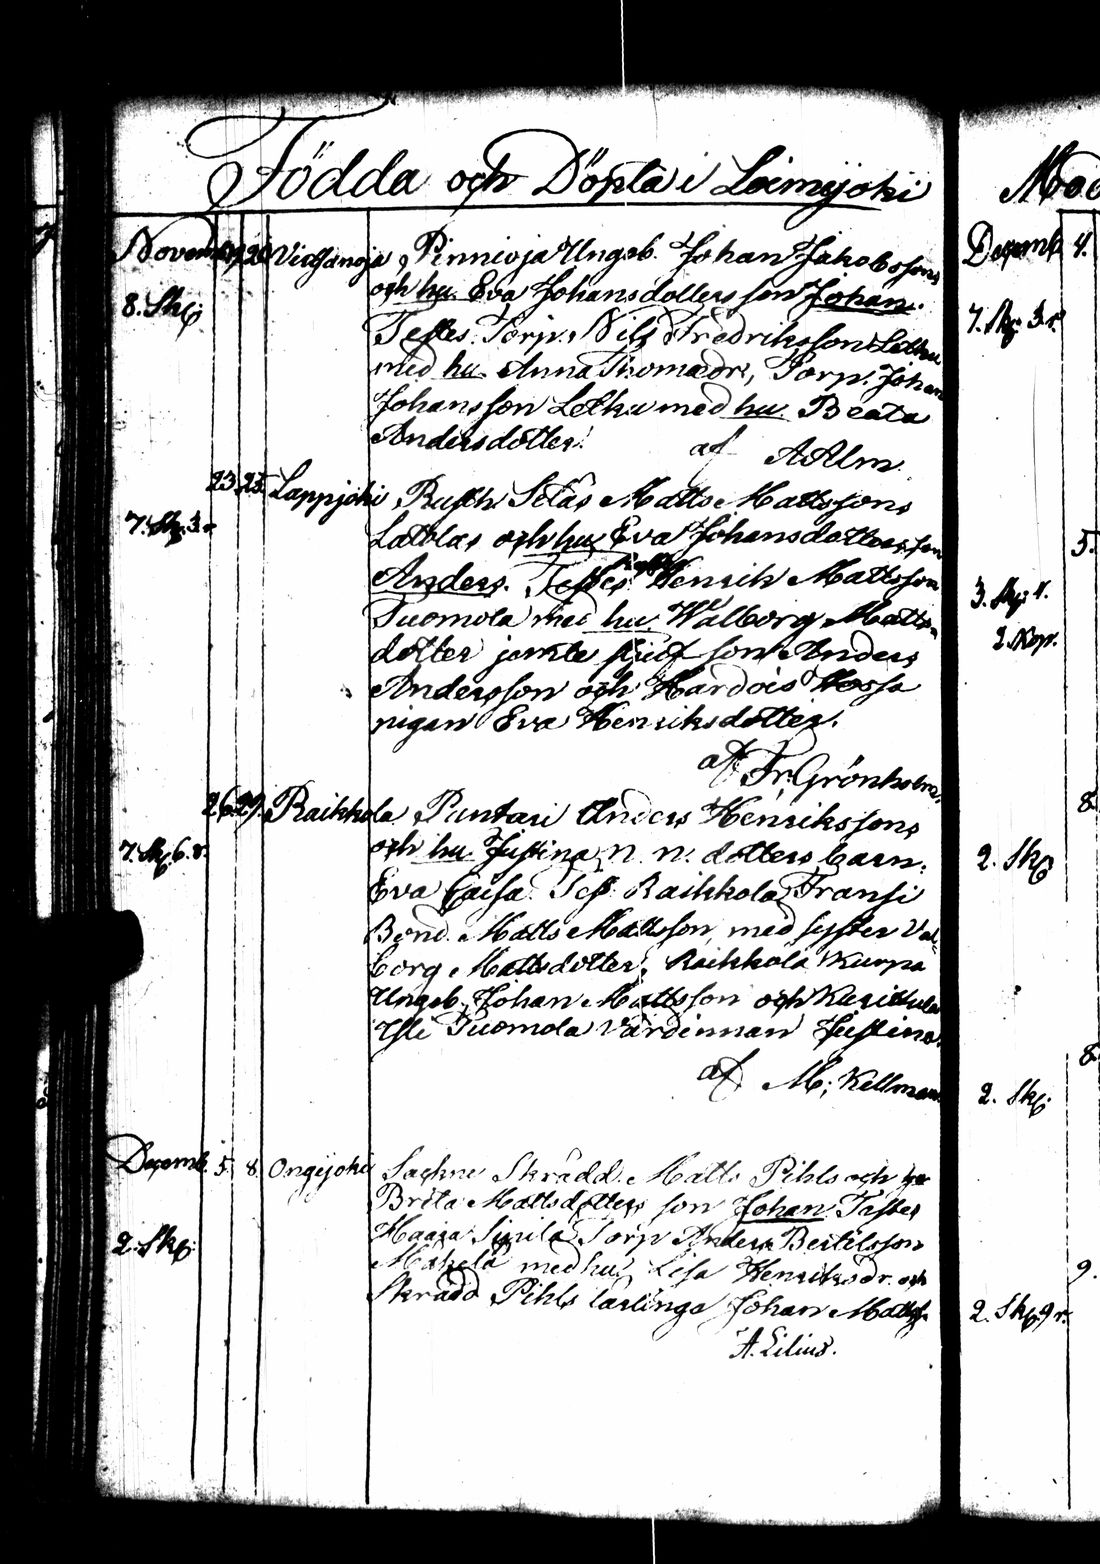 Födda och Döpta i Loimijoki
Novemb. 20 Vidganoja, Pinnioja Ungsb. Johan Jakobssons
och hu. Eva Johansdotters son Johan.
8. Sk;
Testes Torp. Nils Fredriksson Letku
med hu. Anna Thomædr, Torp. Johan
Johansson Letku med hu. Beata
Andersdotter.
af A Alm.
23. 25. Lappjoki Rusth. Matts Mattssons
7. Sk. 3 r.
och hu. Eva Johansdotters son
Anders. Testes Henrik Mattsson
Tuomola med hu. Walborg Matts-
dotter jemte son Anders
Andersson och
pigan Eva Henriksdotter.
af Fr. Grönholm.
26. 29. Raikkola Puntari Anders Henrikssons
och hu. Justina n. n. dotters barn.
7. Sk. 6. r.
Eva Caisa. Tes. Raikkola Fransi
Bond. Matts Mattsson, med syster Val-
borg Mattsdotter, Raikkola Kurpa
Ungsb. Johan Mattsson och
Tuomola Värdinnan Justina.
af M. Kellman
Decemb. 5. 8. Onsijoki Skrädd. Matts Pihls och hu
Brita Mattsdotters son Johan. Testes
2. Sk;
Torp Anders Bertilsson
Mäkelä med hu. Lisa Henriksdr. och
Skrädd Pihls lärlinge Johan Matss.
A. Lilius.
Decemb. 4.
7. Sk; 3. r.
5.
3. Sk; 4.
2 Kop.
8.
2. Sk;
8.
2. Sk;
9.
2. Sk; 9 r.